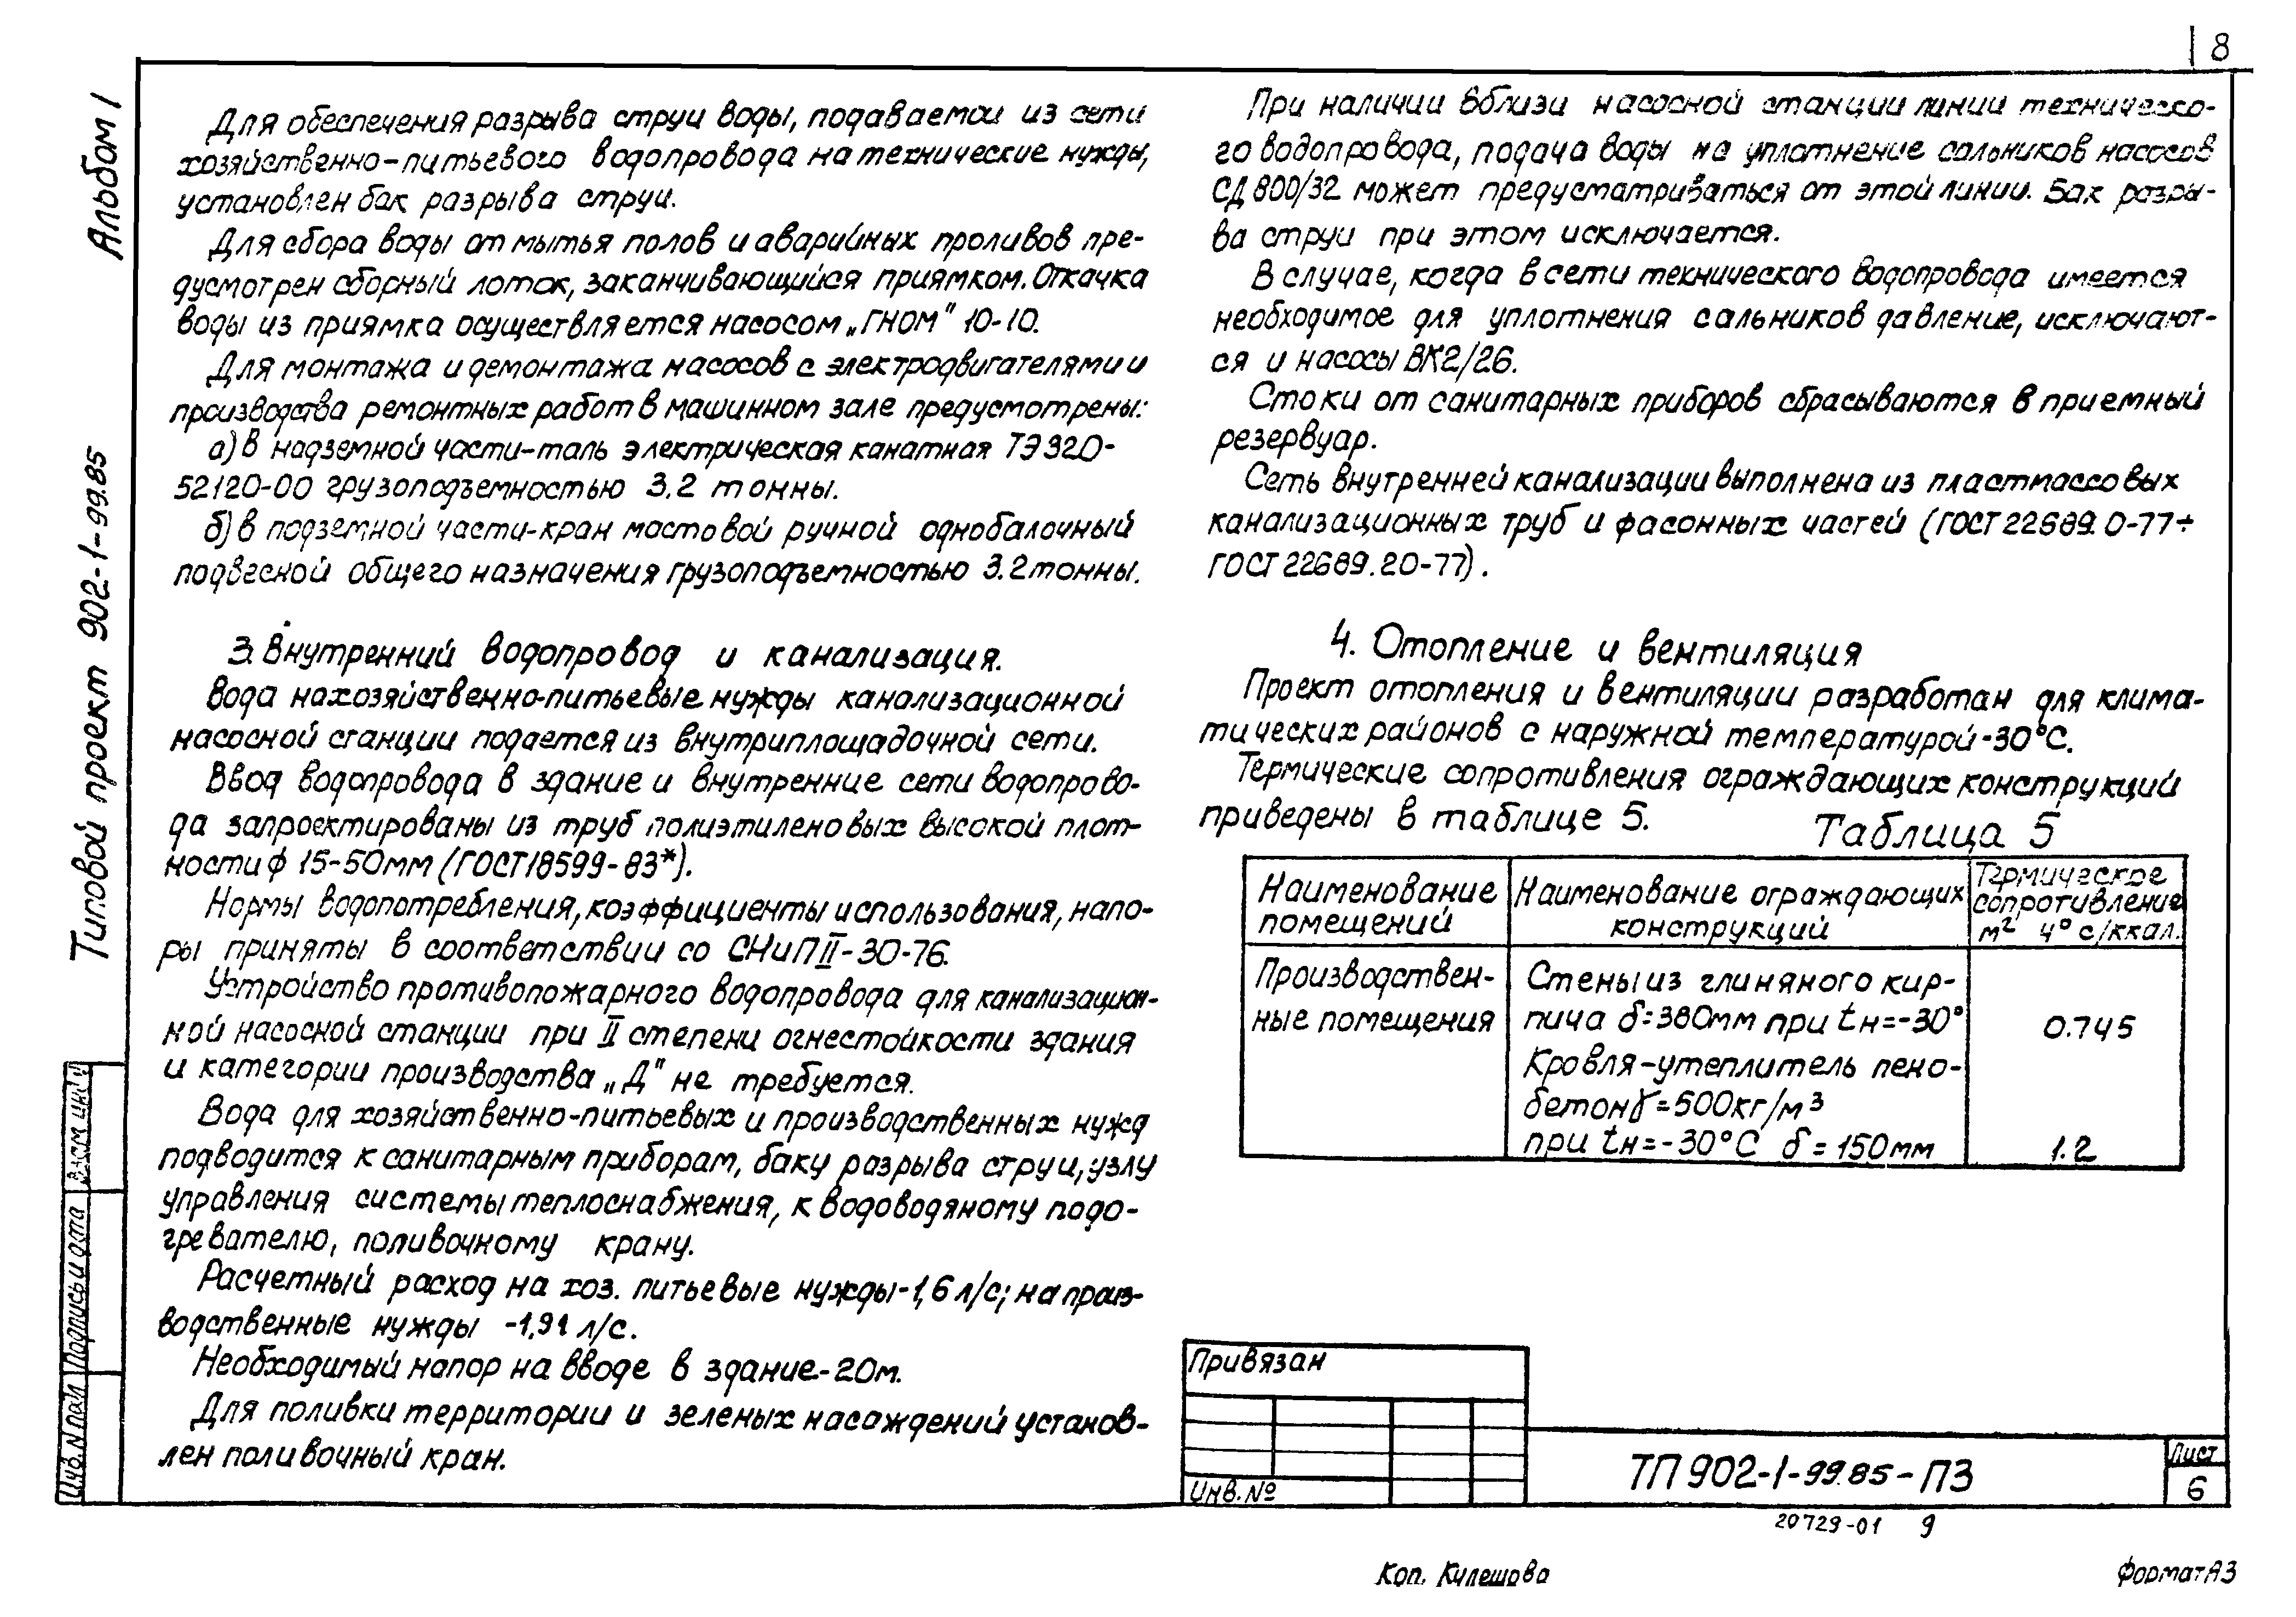 8
Альбом I
Типовой проект 902-1-99.85
Для обеспечения разрыва струи воды, подаваемой из сети
хозяйственно-питьевого водопровода на технические нужды,
установлен бак разрыва струи.
Для сбора воды от мытья полов и аварийных проливов пре-
дусмотрен сборный лоток, заканчивающийся приямком. Откачка
воды из приямка осуществляется насосом „ГНОМ" 10-10.
Для монтажа и демонтажа насосов с электродвигателями и
производства ремонтных работ в машинном зале предусмотрены:
а) в надземной части-таль электрическая канатная ТЭ320-
52120-00 грузоподъемностью 3.2 тонны.
б) в подземной части-кран мостовой ручной однобалочный
подвесной общего назначения грузоподъемностью 3.2 тонны.
3. Внутренний водопровод и канализация.
Вода на хозяйственно-питьевые нужды канализационной
насосной станции подается из внутриплощадочной сети.
Ввод водопровода в здание и внутренние сети водопрово-
да запроектированы из труб полиэтиленовых высокой плот-
ности ф 15-50мм (ГОСТ 18599-83*).
Нормы водопотребления, коэффициенты использования, напо-
ры приняты в соответствии со СНиП II-30-76.
Устройство противопожарного водопровода для канализацион-
ной насосной станции при II степени огнестойкости здания
и категории производства „Д" не требуется.
Вода для хозяйственно-питьевых и производственных нужд
подводится к санитарным приборам, баку разрыва струи, узлу
управления системы теплоснабжения, к водоводяному подо-
гревателю, поливочному крану.
Расчетный расход на хоз. питьевые нужды-1,6 л/с; на произ-
водственные нужды -1,91 л/с.
Необходимый напор на вводе в здание-20м.
Для поливки территории и зеленых насаждений установ-
лен поливочный кран.
При наличии вблизи насосной станции линии техническо-
го водопровода, подача воды на уплотнение сальников насосов
СД 800/32 может предусматриваться от этой линии. Бак разры-
ва струи при этом исключается.
В случае, когда в сети технического водопровода имеется
необходимое для уплотнения сальников давление, исключают-
ся и насосы ВК2/26.
Стоки от санитарных приборов сбрасываются в приемный
резервуар.
Сеть внутренней канализации выполнена из пластмассовых
канализационных труб и фасонных частей (ГОСТ 22689.0-77÷
ГОСТ 22689.20-77).
4. Отопление и вентиляция
Проект отопления и вентиляции разработан для клима-
тических районов с наружной температурой -30°С.
Термические сопротивления ограждающих конструкций
приведены в таблице 5.
Таблица 5
Наименование помещений
Наименование ограждающих конструкций
Термическое сопротивление м² ч°с/ккал.
Производствен-
ные помещения
Стены из глиняного кир-
пича δ=380мм при tн=-30°
0.745
Кровля-утеплитель пено-
бетон γ=500кг/м³
при tн=-30°С δ=150мм
1.2
Привязан
Инв.№
ТП 902-1-99.85-ПЗ
Лист
6
20729-01 9
Коп. Кулешова
Формат А3
Взам инв N
Подпись и дата
Инв. N подл